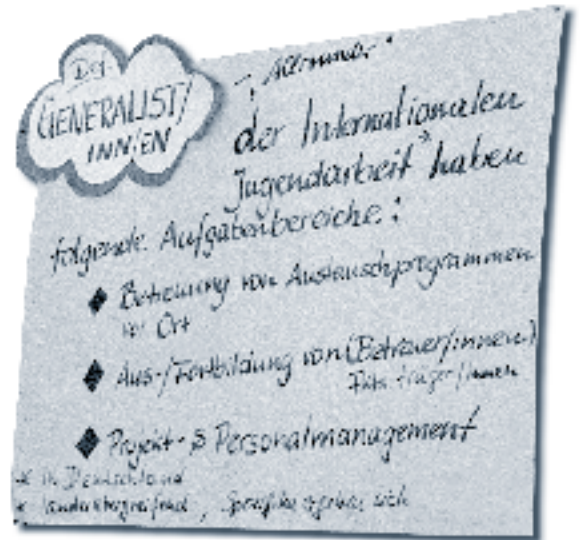 Der
GENERALIST/
INN/EN
der Internationalen
Jugendarbeit* haben
folgende Aufgabenbereiche:
Betreuung von Austauschprogrammen
vor Ort
Aus-/Fortbildung von (Betreuer/innen)
Projekt- & Personalmanagement
* in Deutschland
* länderübergreifend, sich